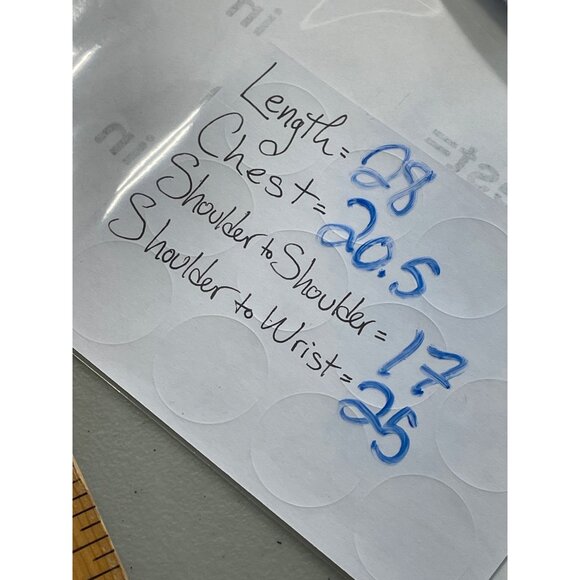 Length = 28
Chest = 20.5
Shoulder to Shoulder = 17
Shoulder to Wrist = 25
in
in
est=